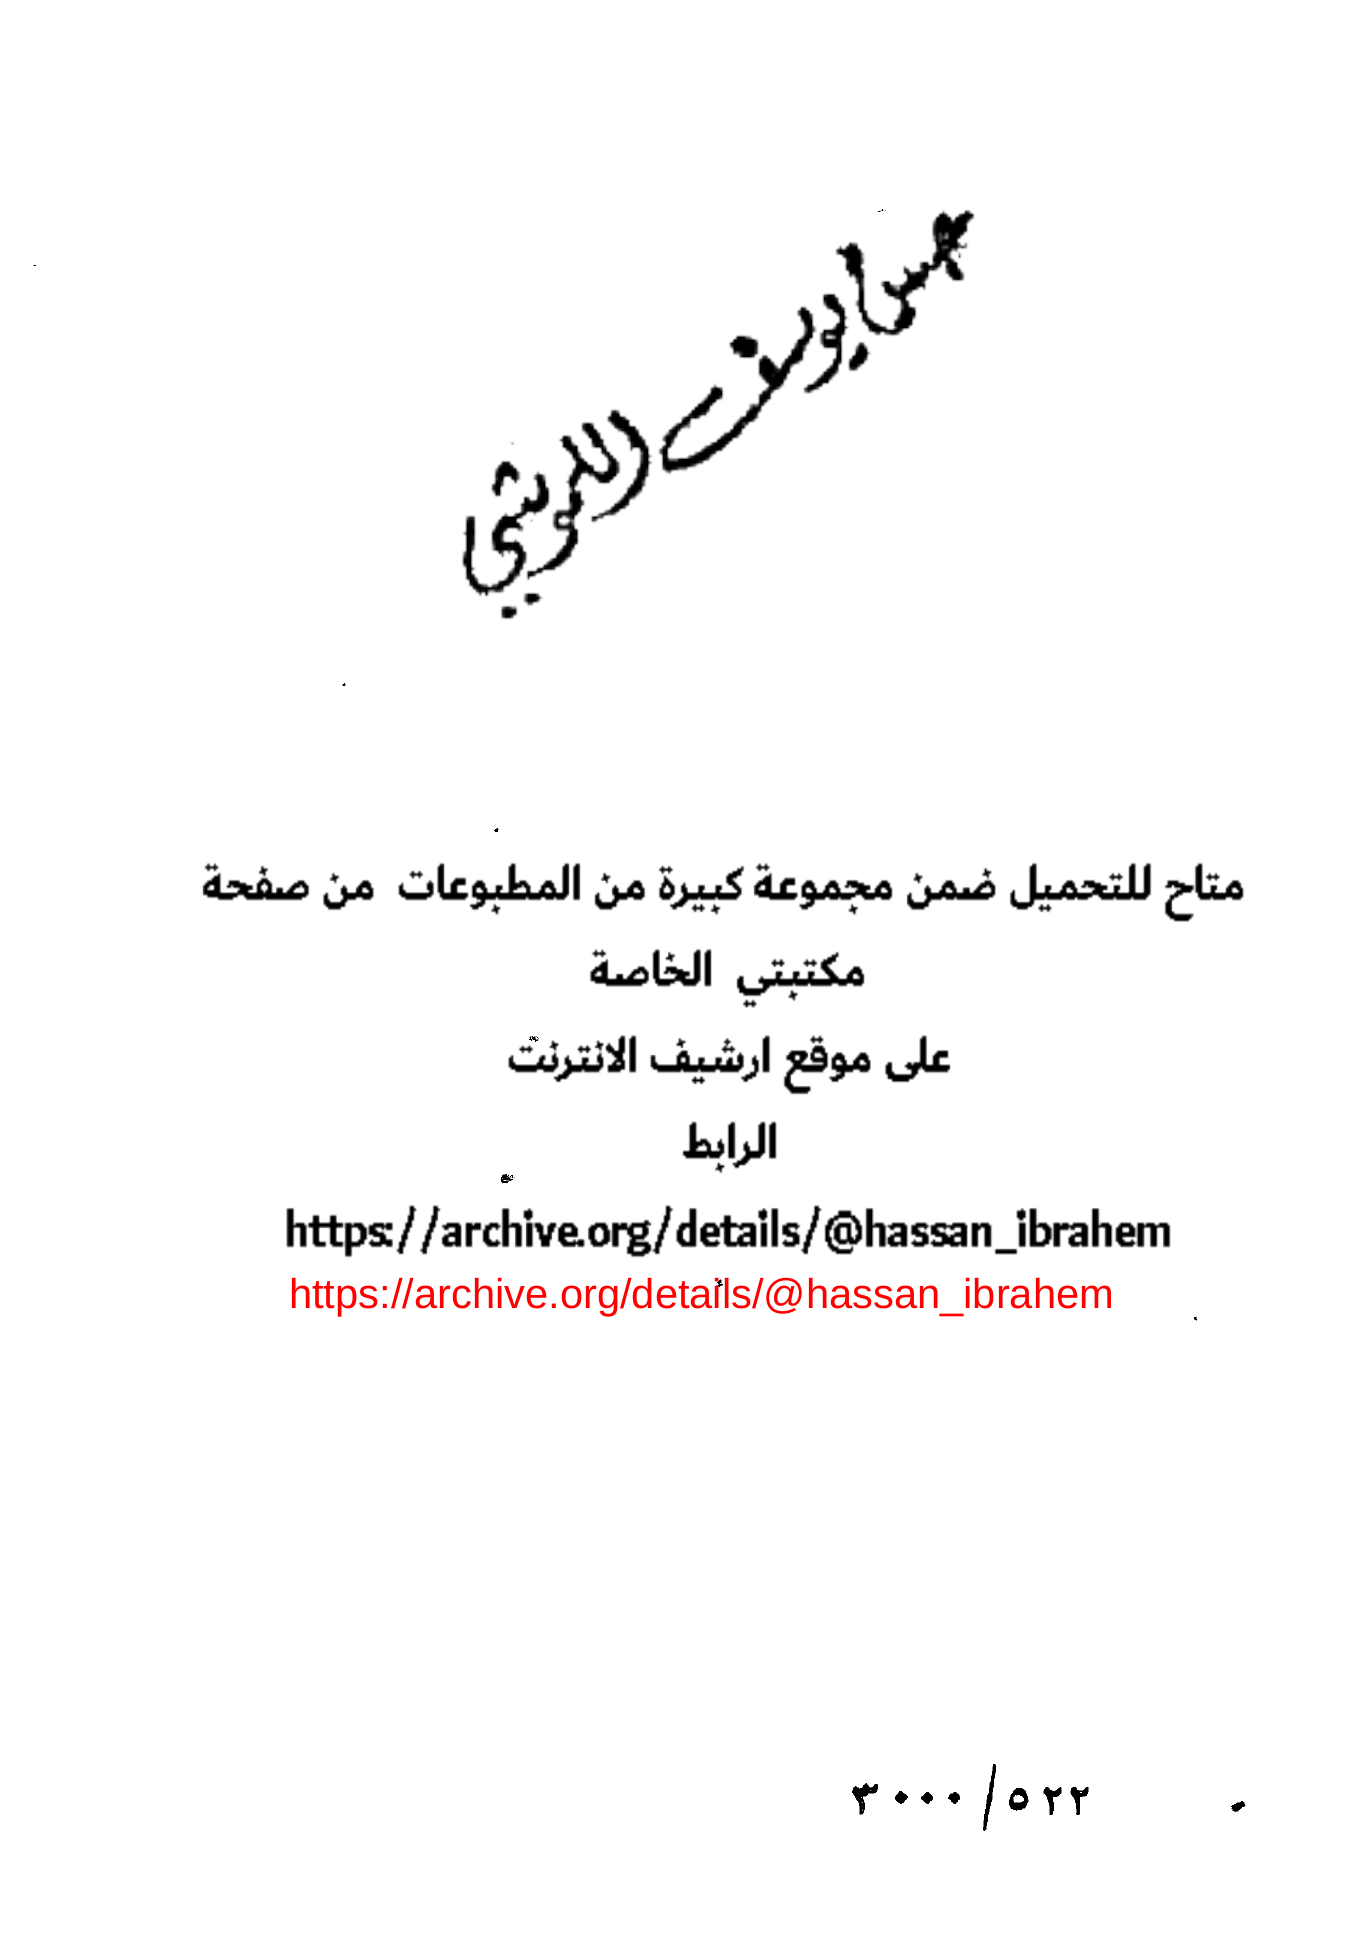 يوسف
متاح للتحميل ضمن مجموعة كبيرة من المطبوعات من صفحة
مكتبتي الخاصة
على موقع ارشيف الانترنت
الرابط
https://archive.org/details/@hassan_ibrahem
https://archive.org/details/@hassan_ibrahem
٣٠٠٠/٥٢٢